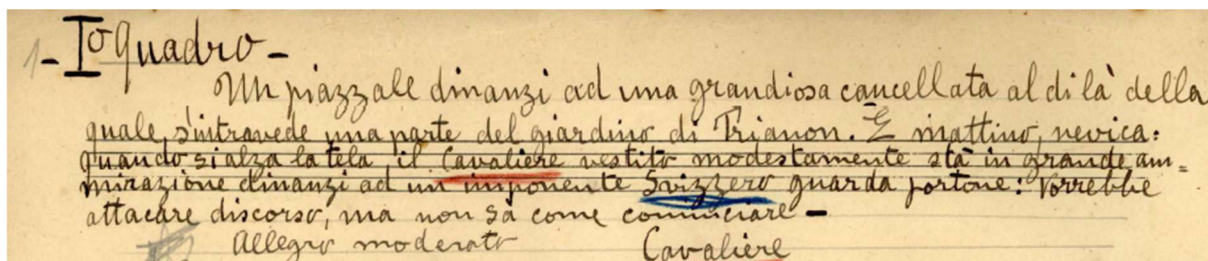 1 - Iº Quadro -
Un piazzale dinanzi ad una grandiosa cancellata al di là della
quale, s'intravede una parte del giardino di Trianon. È mattino, nevica:
quando si alza la tela il Cavaliere vestito modestamente stà in grande am=
mirazione dinanzi ad un imponente Svizzero guarda portone: Vorrebbe
attacare discorso, ma non sà come cominciare -
Allegro moderato Cavaliere